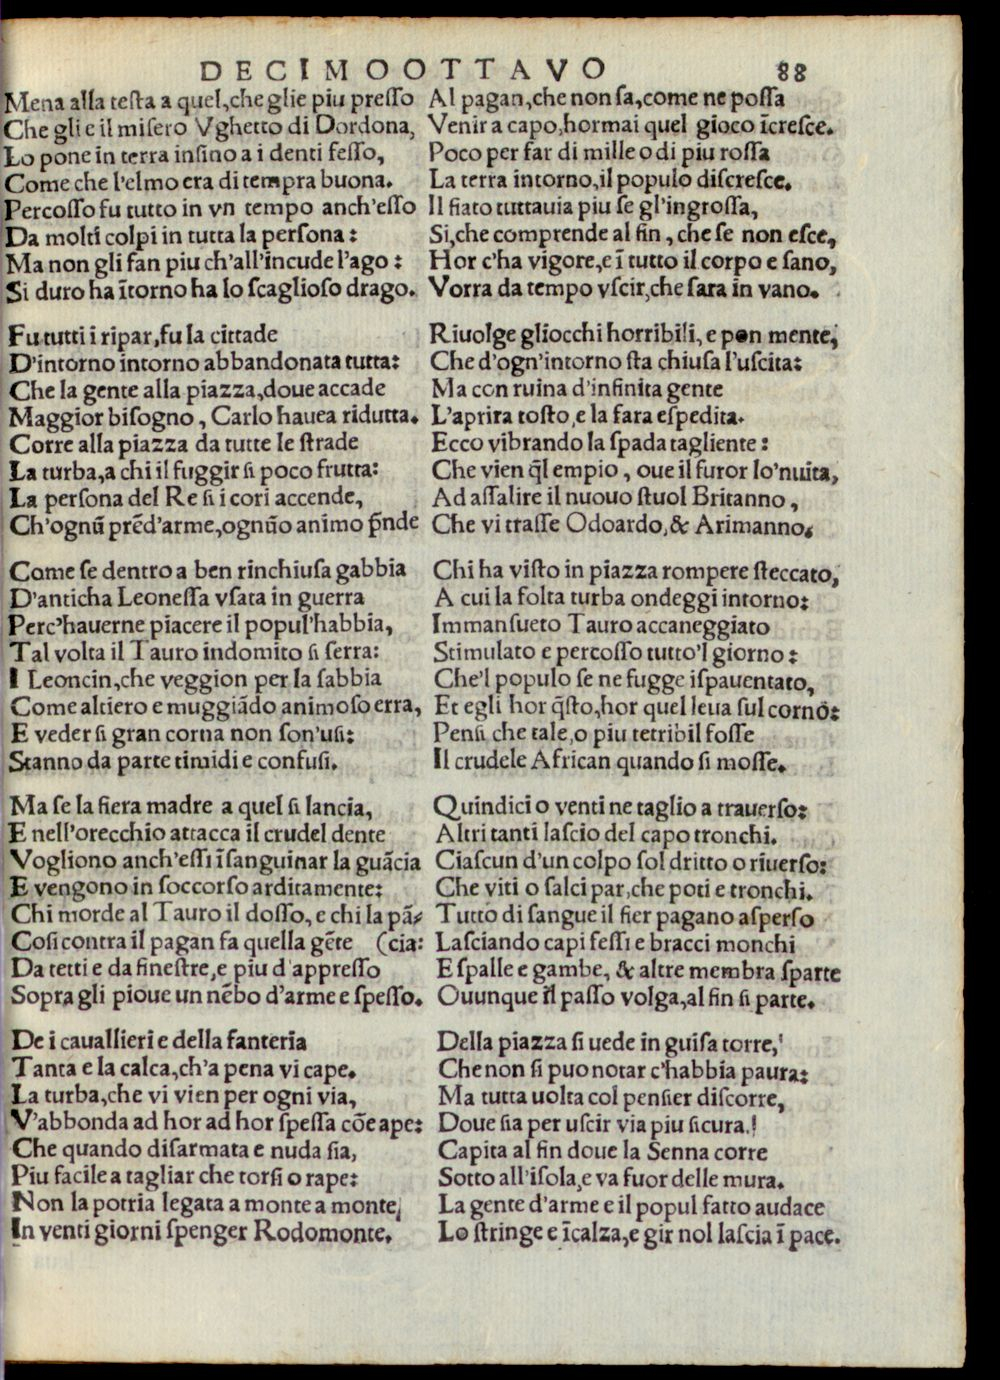 DECIMOOTTAVO 88
Mena alla testa a quel,che glie piu presso
Che gli e il misero Vghetto di Dordona,
Lo pone in terra insino a i denti fesso,
Come che l'elmo era di tempra buona.
Percosso fu tutto in vn tempo anch'esso
Da molti colpi in tutta la persona:
Ma non gli fan piu ch'all'incude l'ago:
Si duro ha ītorno ha lo scaglioso drago.

Fu tutti i ripar,fu la cittade
D'intorno intorno abbandonata tutta:
Che la gente alla piazza,doue accade
Maggior bisogno, Carlo hauea ridutta.
Corre alla piazza da tutte le strade
La turba,a chi il fuggir si poco frutta:
La persona del Re si i cori accende,
Ch'ognū prēd'arme,ognūo animo p̄nde

Come se dentro a ben rinchiusa gabbia
D'anticha Leonessa vsata in guerra
Perc'hauerne piacere il popul'habbia,
Tal volta il Tauro indomito si serra:
I Leoncin,che veggion per la sabbia
Come altiero e muggiādo animoso erra,
E veder si gran corna non son'usi:
Stanno da parte timidi e confusi.

Ma se la fiera madre a quel si lancia,
E nell'orecchio attacca il crudel dente
Vogliono anch'essi īsanguinar la guācia
E vengono in soccorso arditamente:
Chi morde al Tauro il dosso, e chi la pā-
Cosi contra il pagan fa quella gēte (cia:
Da tetti e da finestre,e piu d'appresso
Sopra gli pioue un nēbo d'arme e spesso.

De i cauallieri e della fanteria
Tanta e la calca,ch'a pena vi cape.
La turba,che vi vien per ogni via,
V'abbonda ad hor ad hor spessa cōe ape:
Che quando disarmata e nuda sia,
Piu facile a tagliar che torsi o rape:
Non la potria legata a monte a monte,
In venti giorni spenger Rodomonte.

Al pagan,che non sa,come ne possa
Venir a capo,hormai quel gioco īcresce.
Poco per far di mille o di piu rossa
La terra intorno,il populo discresce.
Il fiato tuttauia piu se gl'ingrossa,
Si,che comprende al fin, che se non esce,
Hor c'ha vigore,e ī tutto il corpo e sano,
Vorra da tempo vscir,che sara in vano.

Riuolge gliocchi horribili, e pon mente,
Che d'ogn'intorno sta chiusa l'uscita:
Ma con ruina d'infinita gente
L'aprira tosto,e la fara espedita.
Ecco vibrando la spada tagliente:
Che vien q̄l empio, oue il furor lo'nuita,
Ad assalire il nuouo stuol Britanno,
Che vi trasse Odoardo,& Arimanno.

Chi ha visto in piazza rompere steccato,
A cui la folta turba ondeggi intorno:
Immansueto Tauro accaneggiato
Stimulato e percosso tutto'l giorno:
Che'l populo se ne fugge ispauentato,
Et egli hor q̄sto,hor quel leua sul corno:
Pensi che tale,o piu terribil fosse
Il crudele African quando si mosse.

Quindici o venti ne taglio a trauerso:
Altri tanti lascio del capo tronchi.
Ciascun d'un colpo sol dritto o riuerso:
Che viti o salci par,che poti e tronchi.
Tutto di sangue il fier pagano asperso
Lasciando capi fessi e bracci monchi
E spalle e gambe, & altre membra sparte
Ouunque il passo volga,al fin si parte.

Della piazza si uede in guisa torre,
Che non si puo notar c'habbia paura:
Ma tutta uolta col pensier discorre,
Doue sia per uscir via piu sicura.
Capita al fin doue la Senna corre
Sotto all'isola,e va fuor delle mura.
La gente d'arme e il popul fatto audace
Lo stringe e īcalza,e gir nol lascia ī pace.